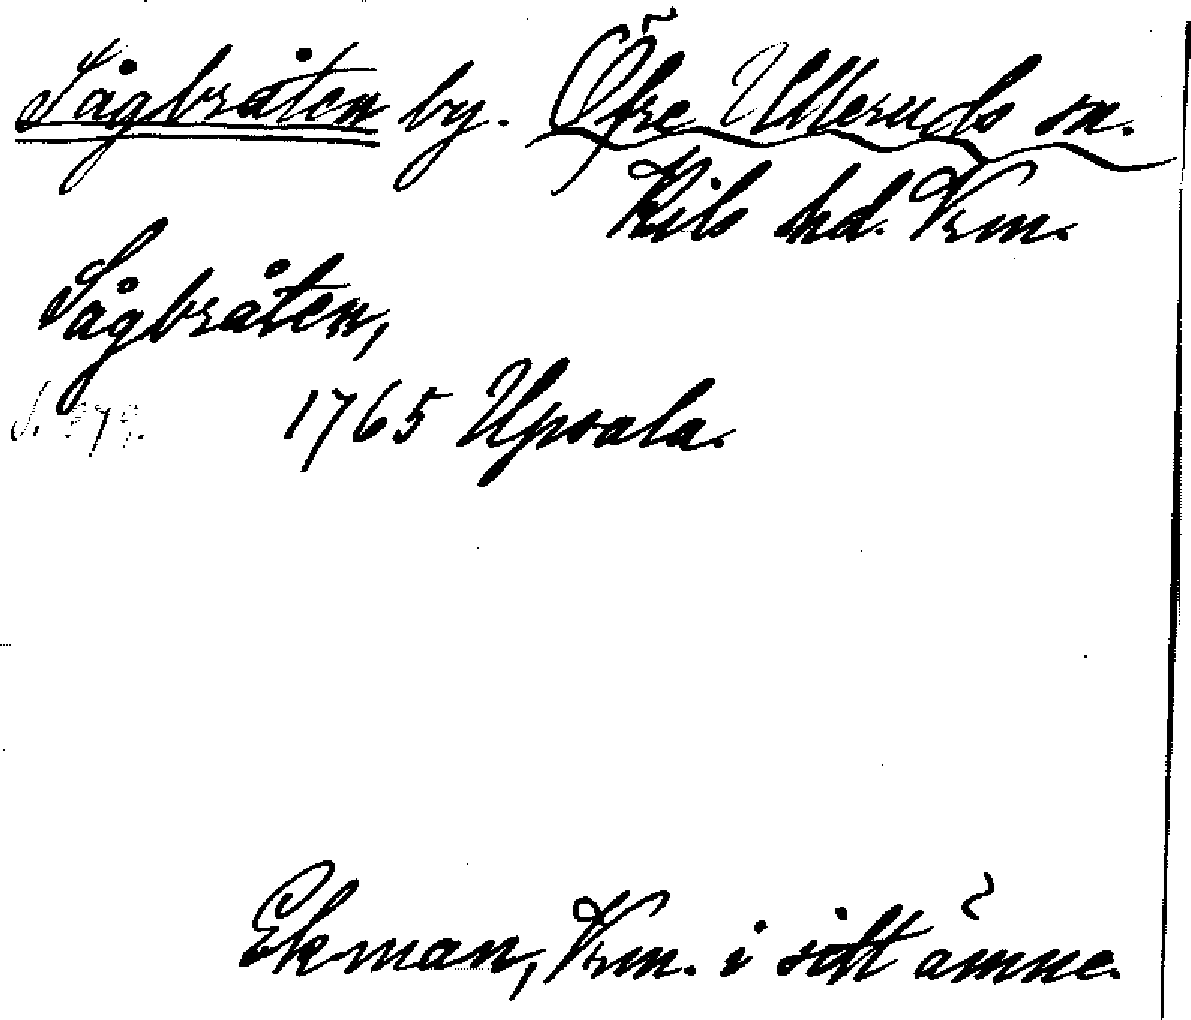 Sågbråten by. Öfre Ulleruds sn.
Kils hd. Vrm.
Sågbråten,
1765 Upsala.
Ekman, Vrm. i sitt ämne.